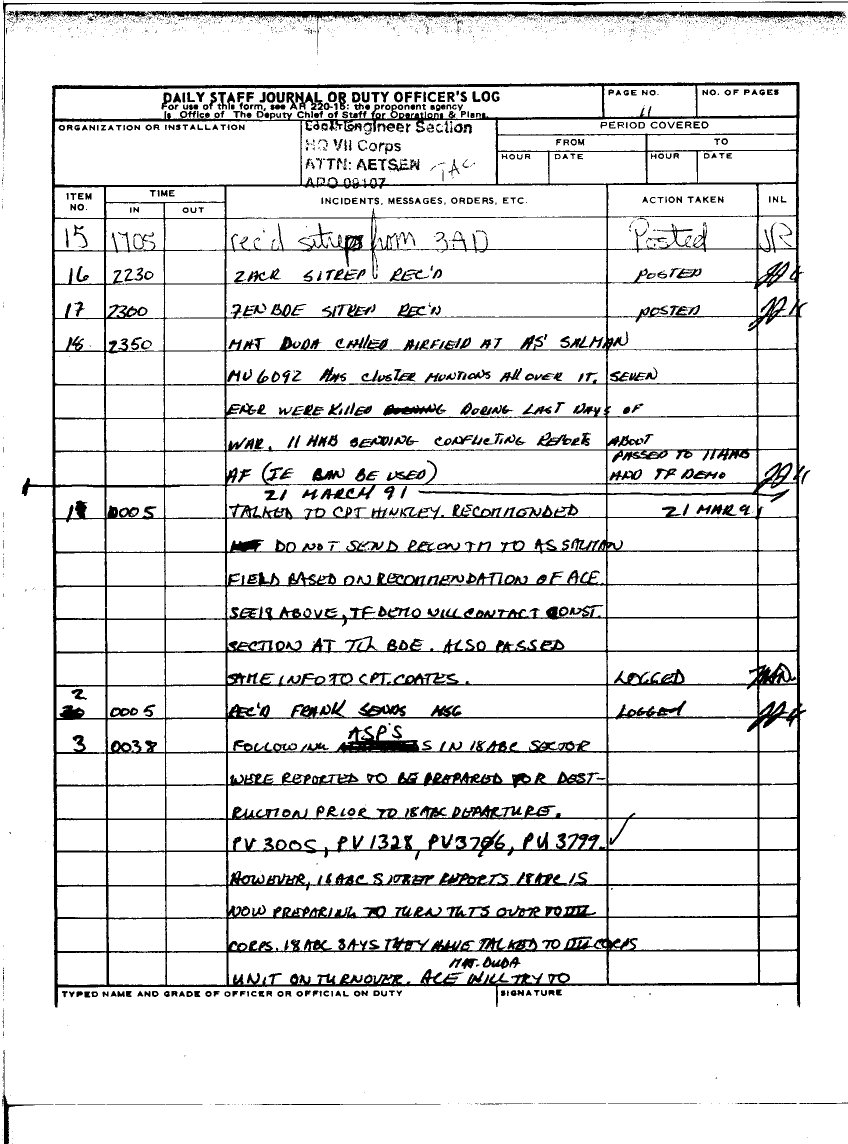 DAILY STAFF JOURNAL OR DUTY OFFICER'S LOG
For use of this form, see AR 220-15: the proponent agency
is Office of The Deputy Chief of Staff for Operations & Plans.
PAGE NO.
11
NO. OF PAGES
ORGANIZATION OR INSTALLATION
Engineer Section
HQ VII Corps
ATTN: AETSEN TAC
APO 09107
PERIOD COVERED
FROM TO
HOUR DATE HOUR DATE
ITEM NO. TIME IN OUT INCIDENTS, MESSAGES, ORDERS, ETC. ACTION TAKEN INL
15 1705 rec'd sitreps from 3AD Posted JR
16 2230 2ACR SITREP REC'D POSTED
17 2300 7EN BDE SITREP REC'D POSTED
18 2350 MAJ DUDA CALLED AIRFIELD AT AS' SALMAN
MU6092 HAS CLUSTER MUNTIONS All OVER IT. SEVEN
ENGR WERE KILLED DURING LAST DAYS OF
WAR. 11 HAB SENDING CONFLICTING REPORTS ABOUT
AF (IE CAN BE USED) PASSED TO 11 AHB AND TF DEMO
21 MARCH 91
1 0005 TALKED TO CPT HINKLEY. RECOMMENDED 21 MAR 91
DO NOT SEND RECON TM TO AS SALMAN
FIELD BASED ON RECOMMENDATION OF ACE.
SEE 18 ABOVE, TF DEMO WILL CONTACT CONST.
SECTION AT 7th BDE. ALSO PASSED
SAME INFO TO CPT. COATES. LOGGED
2 0005 REC'D FRANK SENDS MSG LOGGED
3 0038 FOLLOWING ASP'S IN 18 ABC SECTOR
WERE REPORTED TO BE PREPARED FOR DEST-
RUCTION PRIOR TO 18 ABC DEPARTURE.
PV 3005, PV 1328, PV3706, PU 3799.
HOWEVER, 18 ABC SITREP REPORTS 18 ABC IS
NOW PREPARING TO TURN TGTS OVER TO III
CORPS. 18 ABC SAYS THEY HAVE TALKED TO III CORPS
MAJ. DUDA
UNIT ON TURNOVER. ACE WILL TRY TO
TYPED NAME AND GRADE OF OFFICER OR OFFICIAL ON DUTY
SIGNATURE